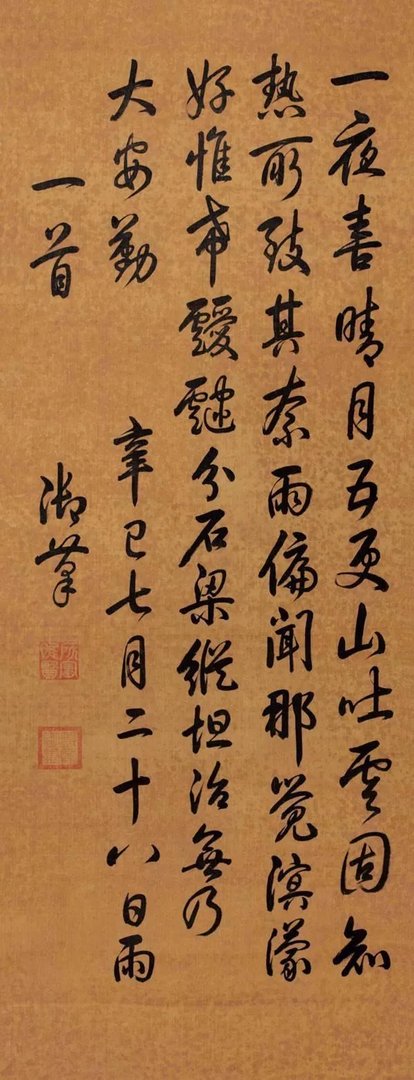 一夜喜晴月五更山吐雲固知
熱所致其奈雨偏聞那覺溟濛
好惟希靉靆分石梁縱坦治無乃
大安勤
辛巳七月二十八日雨
一首
御筆